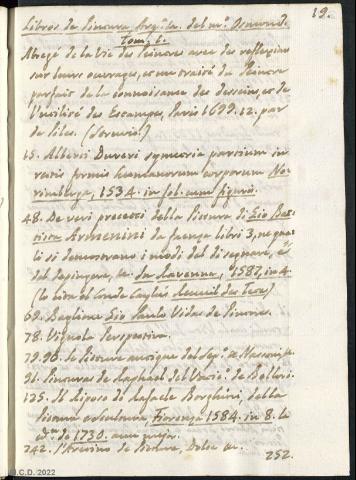 19.
Libros de Pintura Arq.ta del m.o
Tom. 1.
Abregé de la Vie des Peintres avec des reflexions
sur leurs ouvrages, et un traité du Peintre
parfait de la connoissance des desseins, et de
l'utilité des Estampes, Paris 1699. 12. par
de Piles.
15. Alberti Dureri symetria partium in
rectis formis humanorum corporum No-
rimbergæ, 1534. in fol. cum figuris.
48. De veri precetti della Pittura di Gio Bat-
tista Armenini da Faenza libri 3, ne qua-
li si demostrano i modi del disegnare, e
del depingere, &. In Ravenna, 1587, in 4.
(lo cita el Conde Caylus Recueil des Tetes)
69. Baglione Gio Paulo Vidas de Pintores.
78. Vignola Perspectiva.
79. 96. de Pitture antique del Sep.o de Nassoni,
91. Pinturas de Raphael del Vatic.o de Bellori.
125. Il Riposo di Rafaele Borghini, della
Pittura e Scultura, Fiorenza 1584. in 8. la
ed.n de 1730.
242. l'Aretino de Pittura, Dolce &.
252.
C.D. 2022